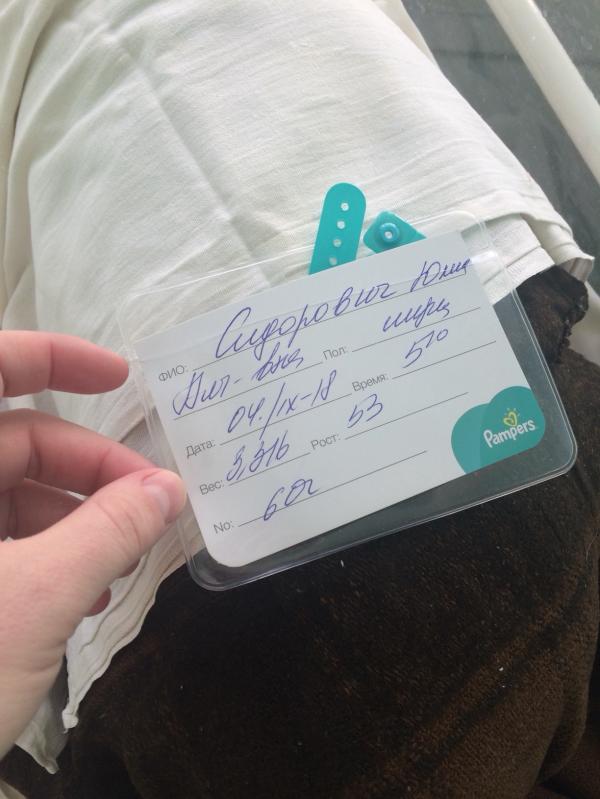 ФИО: Сидорович Юлия
Дм-вна Пол:
Дата: 04./IX-18 Время: 5¹⁰
Вес: 3,316 Рост: 53
No: 60г
Pampers